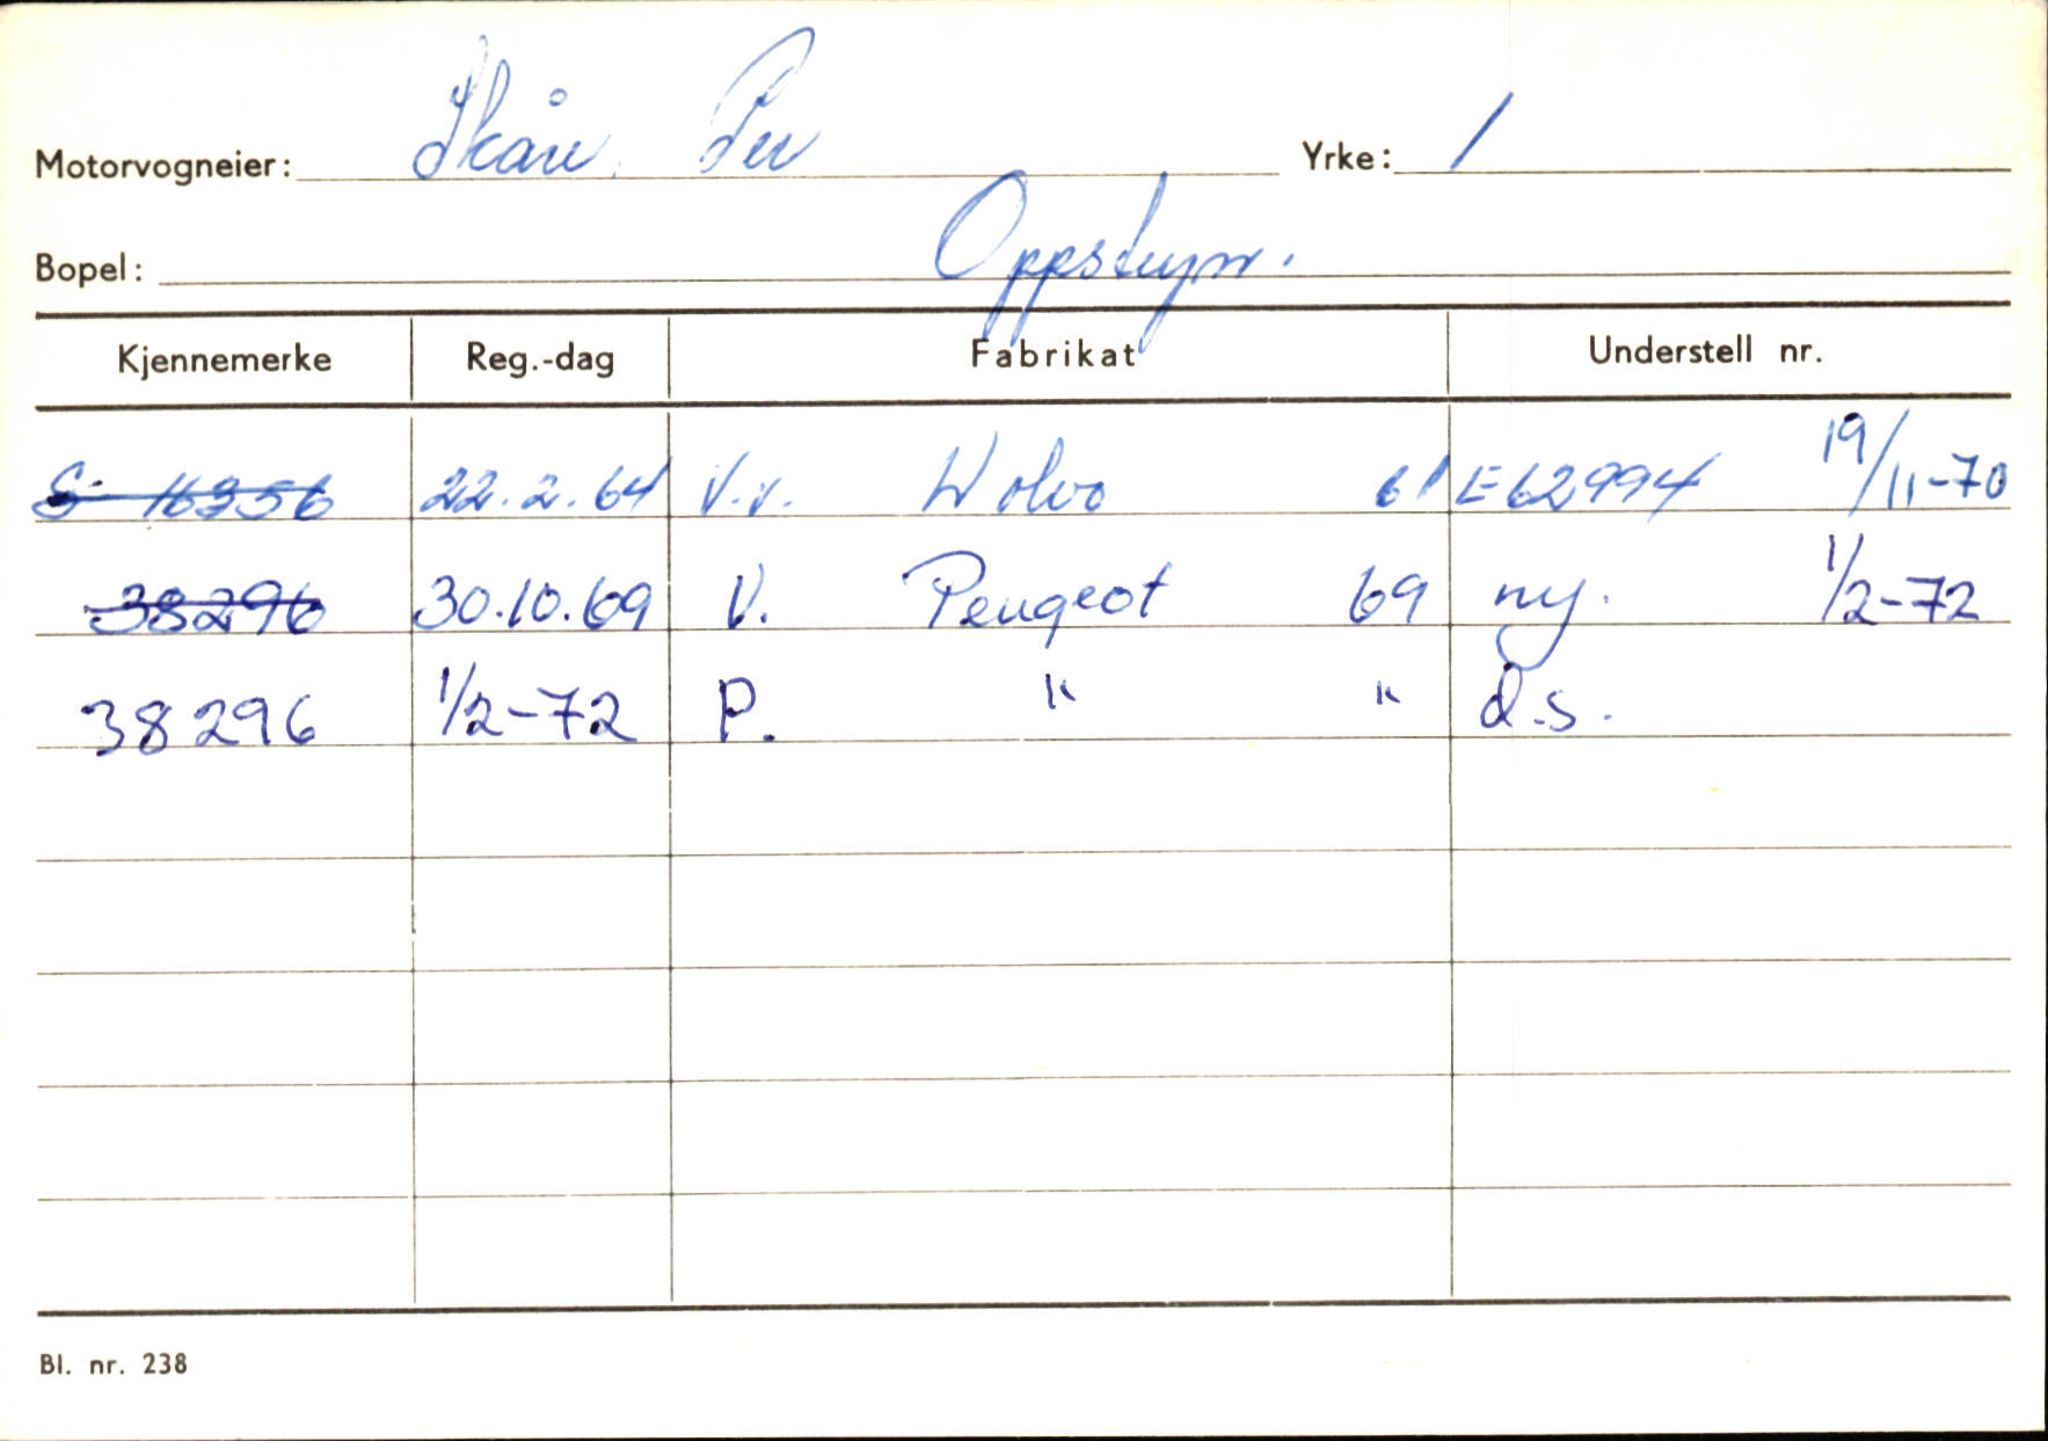 Motorvogneier: Skåre Per Yrke: 1
Bopel: Oppstryn.
Kjennemerke Reg.-dag Fabrikat Understell nr.
S- 16356 22.2.64 V.v. Wolvo 61 E62994 19/11-70
38296 30.10.69 V. Peugeot 69 ny. 1/2-72
38296 1/2-72 P. " " d.s.
Bl. nr. 238